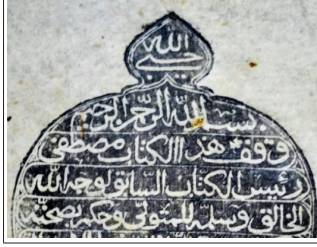 الله
حسبي
بسم الله الرحمن الرحيم
وقف هذا الكتاب مصطفى
رئيس الكتاب السابق لوجه الله
الخالق وسلمه للمتولي وحكم بصحته